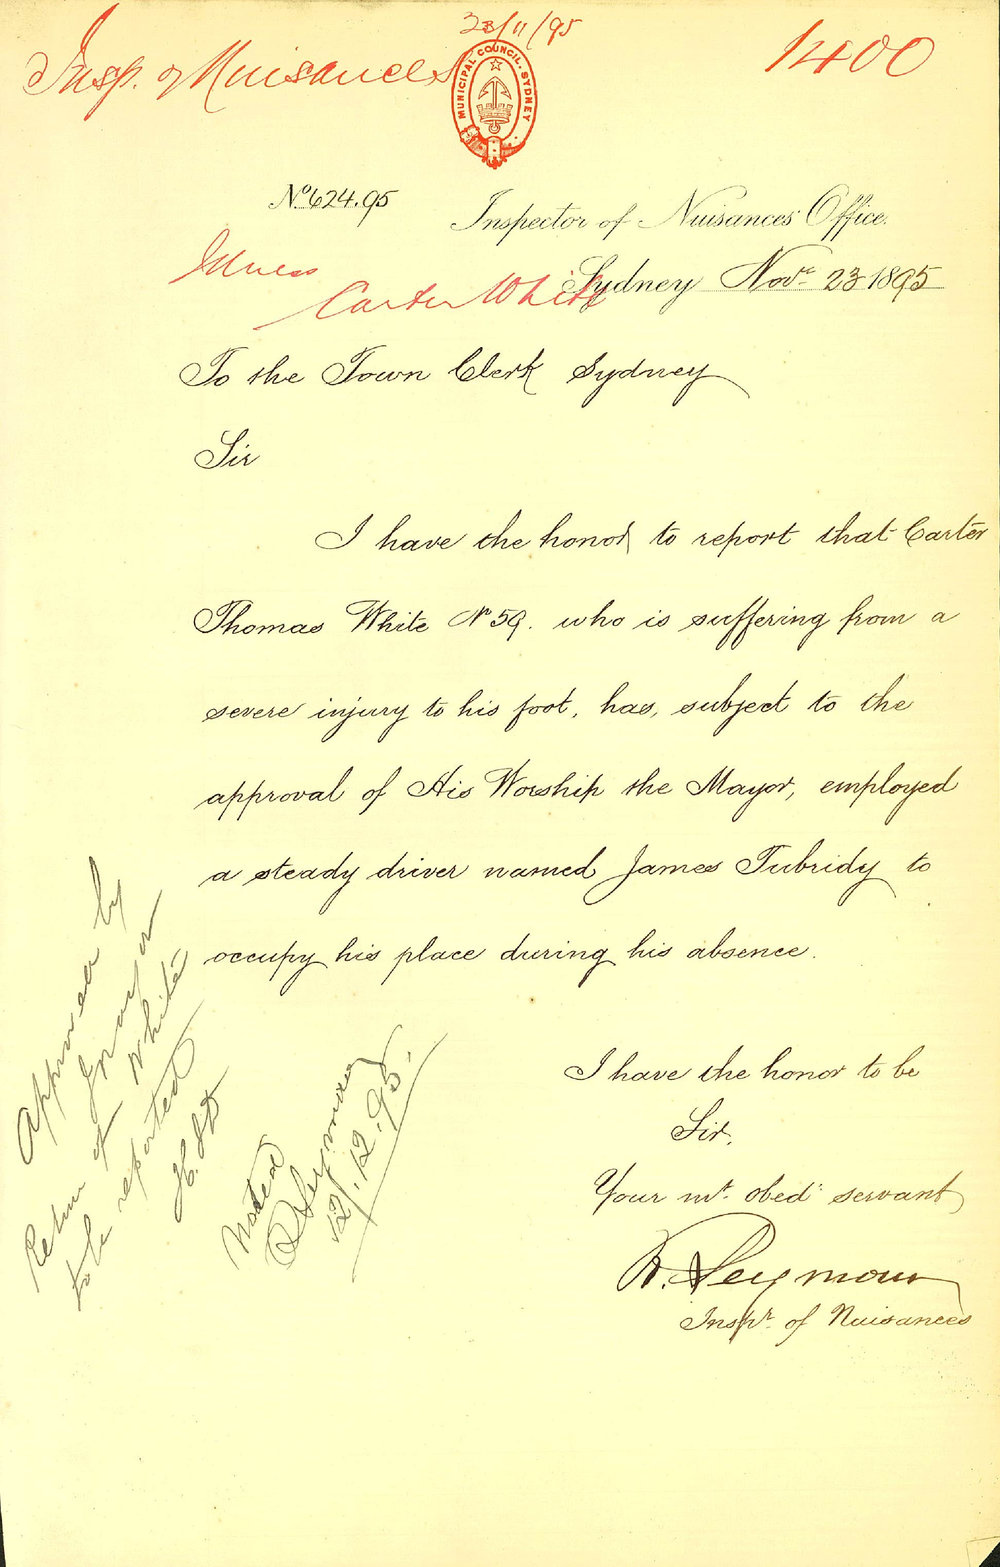 23/11/95
Insp. of Nuisances
1400
MUNICIPAL COUNCIL. SYDNEY
No 624.95
Inspector of Nuisances Office.
Illness
Carter White
Sydney Novr 23 1895
To the Town Clerk Sydney
Sir
I have the honor to report that Carter
Thomas White No 59. who is suffering from a
severe injury to his foot, has, subject to the
approval of His Worship the Mayor, employed
a steady driver named James Tubridy to
occupy his place during his absence.
I have the honor to be
Sir,
Your mt. obedt servant
R. Seymour
Inspr. of Nuisances
Approved by
Mayor
Return of White
to be reported
Noted
R Seymour
12/.12.95.